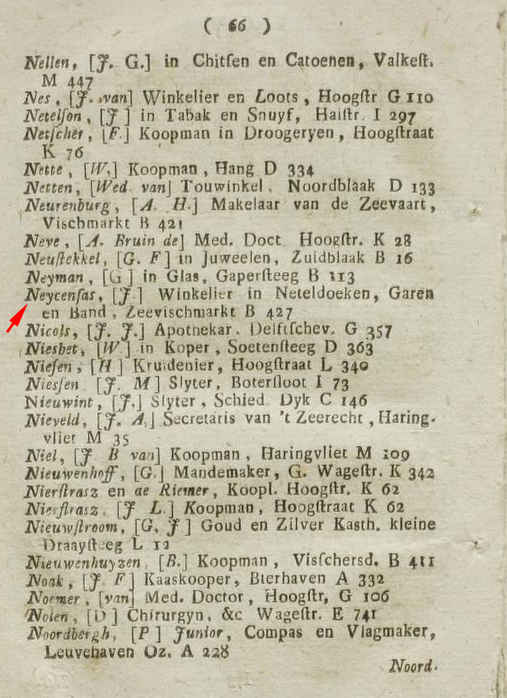 ( 66 )
Nellen, [J. G.] in Chitſen en Catoenen, Valkeſt.
M 447
Nes, [J. van] Winkelier en Loots, Hoogſtr G 110
Netelſon, [J ] in Tabak en Snuyf, Halſtr. I 297
Netſcher, [F.] Koopman in Droogeryen, Hoogſtraat
K 76
Nette, [W.] Koopman, Hang D 334
Netten, [Wed van] Touwinkel, Noordblaak D 133
Neurenburg, [A. H.] Makelaar van de Zeevaart,
Viſchmarkt B 421
Neve, [A. Bruin de] Med. Doct Hoogſtr. K 28
Neuſtekkel, [G. F ] in Juweelen, Zuidblaak B 16
Neyman, [G ] in Glas, Gaperſteeg B 113
Neycenſas, [J.] Winkelier in Neteldoeken, Garen
en Band, Zeeviſchmarkt B 427
Nicols, [J. J.] Apothekar. Delftſchev. G 357
Niesbet, [W ] in Koper, Soetenſteeg D 363
Nieſen, [H ] Kruidenier, Hoogſtraat L 340
Niesſen, [J. M ] Slyter, Boterſloot I 73
Nieuwint, [J.] Slyter, Schied Dyk C 146
Nieveld, [J. A.] Secretaris van 't Zeerecht, Haring-
vliet M 35
Niel, [J. B van] Koopman, Haringvliet M 109
Nieuwenhoff, [G.] Mandemaker, G. Wageſtr. K 342
Nierſtrasz en de Riemer, Koopl. Hoogſtr. K 62
Nierſtrasz, [J L.] Koopman, Hoogſtraat K 62
Nieuwſtroom, [G. J ] Goud en Zilver Kasth. kleine
Draayſteeg L 12
Nieuwenhuyzen, [B.] Koopman, Visſchersd. B 411
Noak, [J. F ] Kaaskooper, Bierhaven A 332
Noemer, [van] Med. Doctor, Hoogſtr, G 106
Nolen, [D ] Chirurgyn, &c Wageſtr. E 741
Noordbergh, [P ] Junior, Compas en Vlagmaker,
Leuvehaven Oz. A 228
Noord-